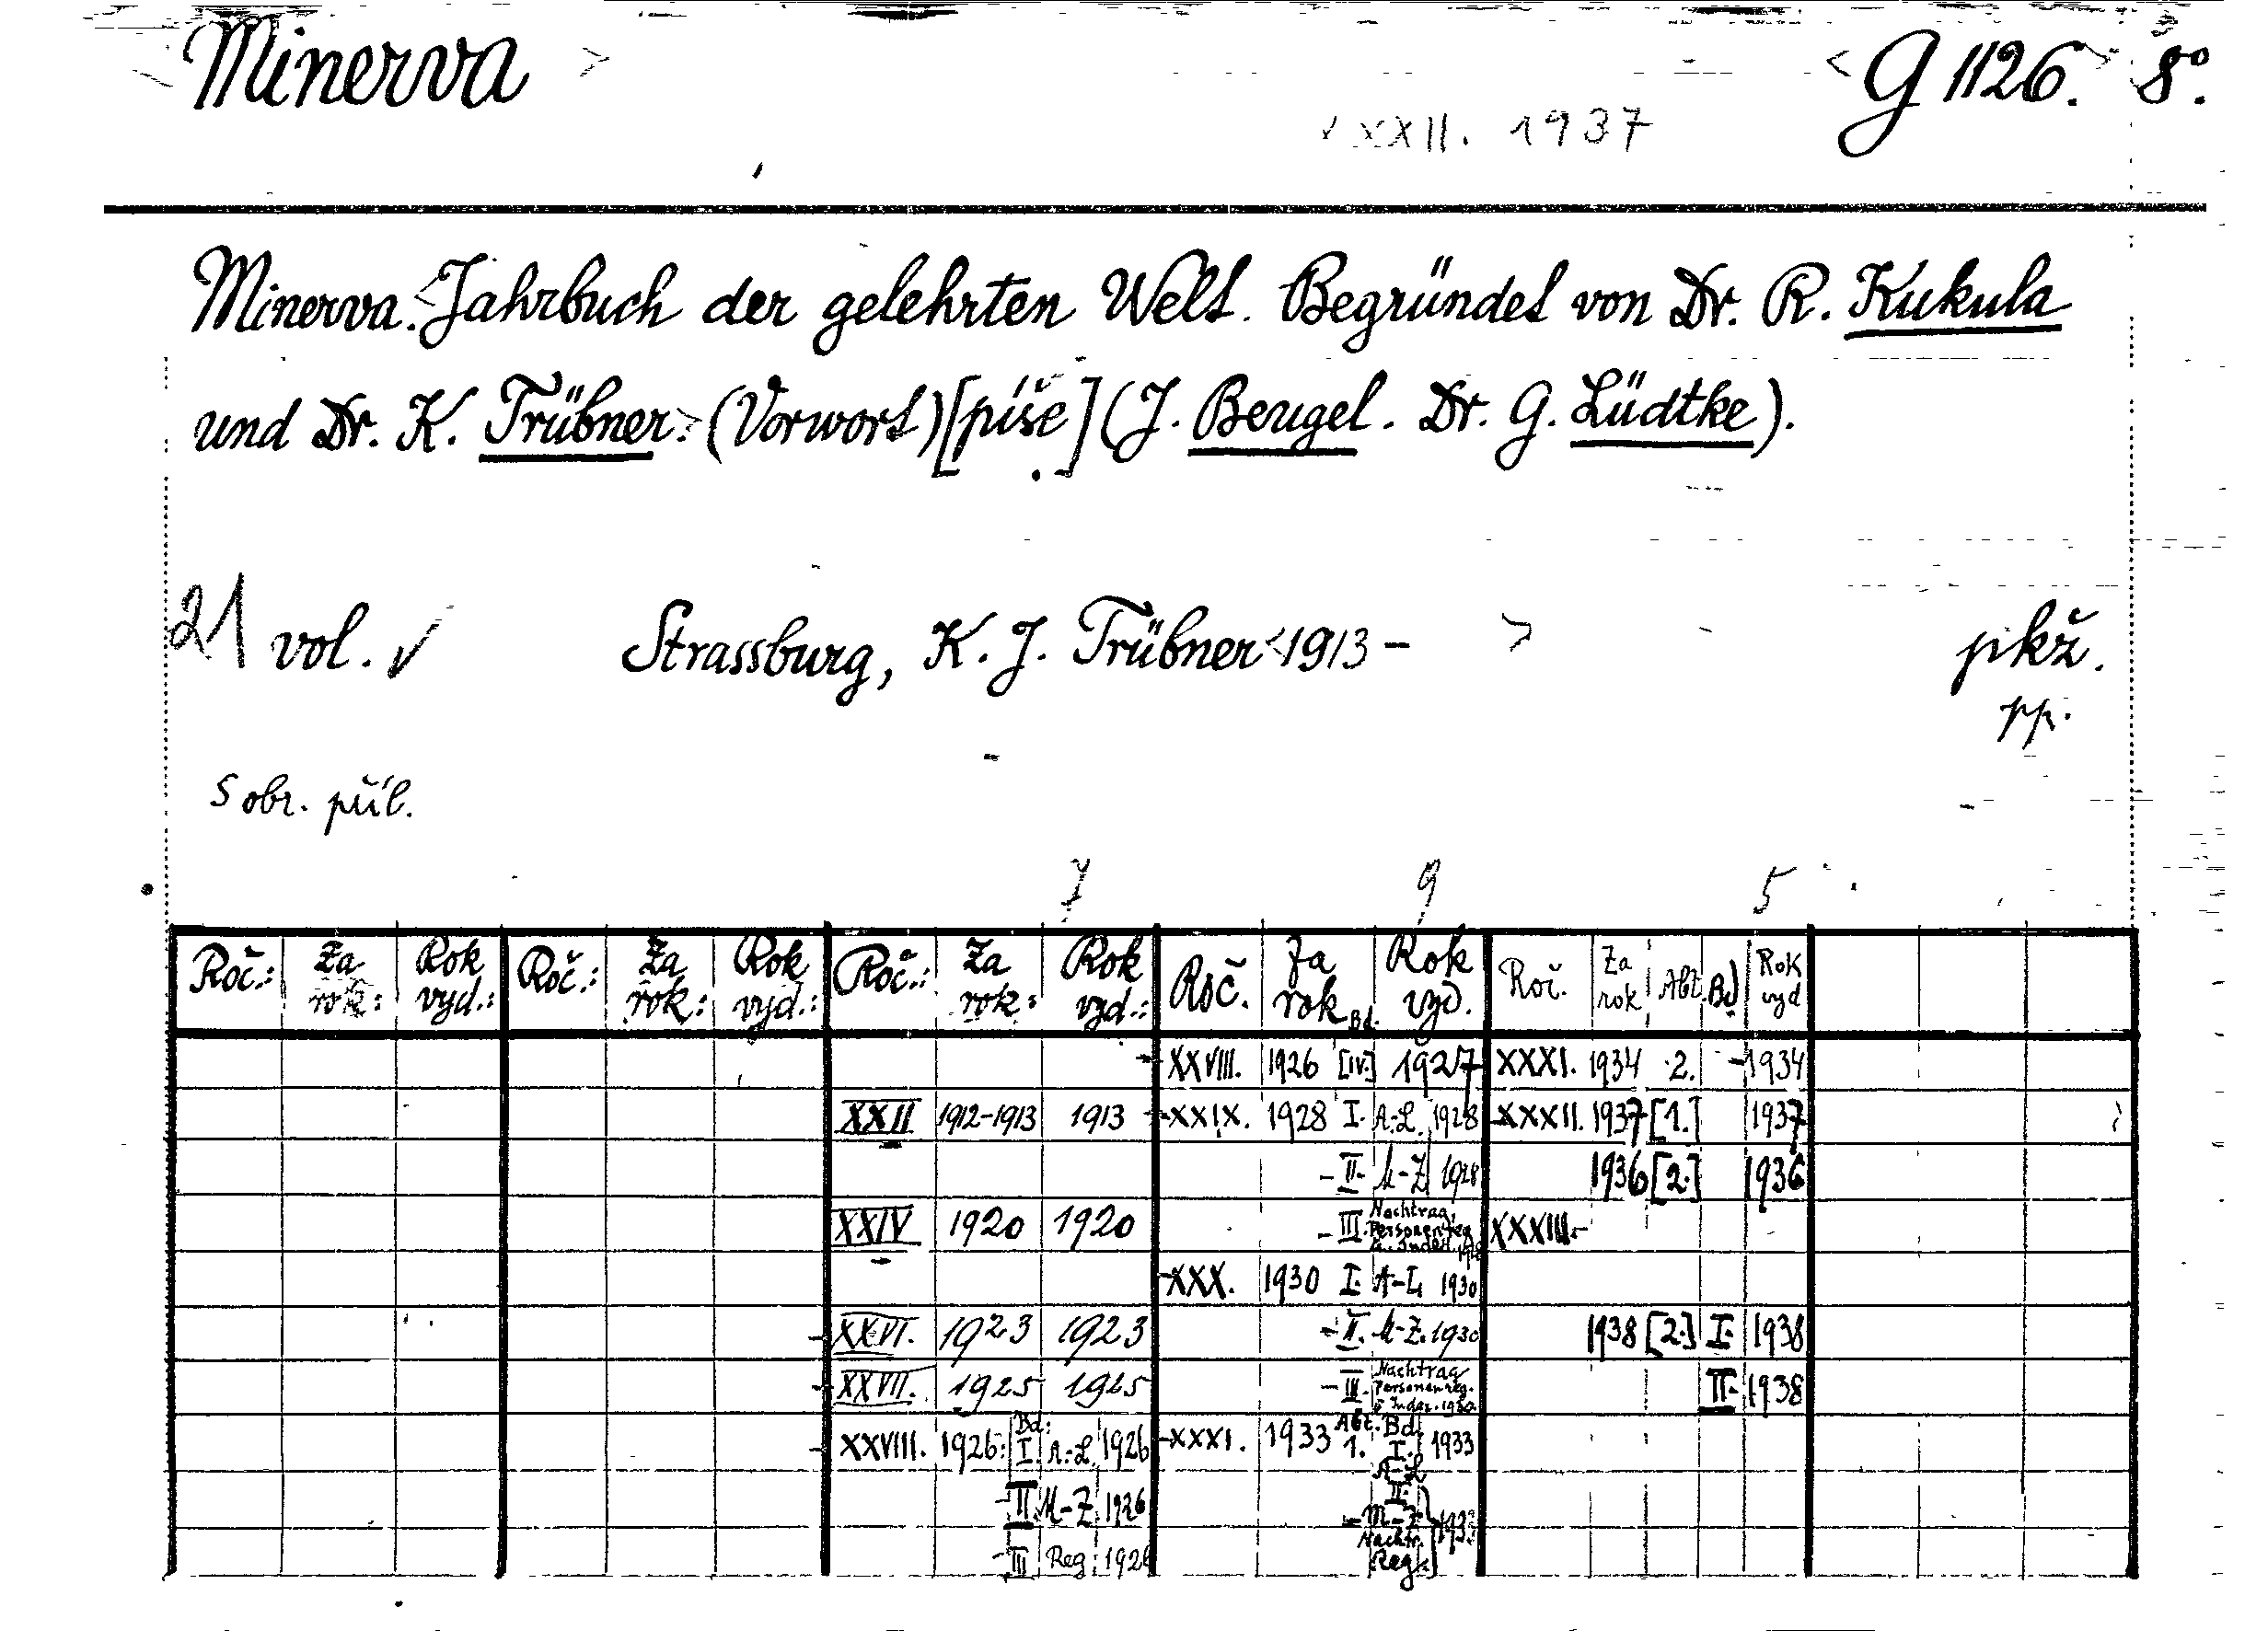 Minerva > < G 1126. 8°.
XXXII. 1937
Minerva. <Jahrbuch der gelehrten Welt. Begründet von Dr. R. Kukula
und Dr. K. Trübner.> (Vorwort) [píše] (J. Beugel. Dr. G. Lüdtke).
21 vol. ✓ Strassburg, K. J. Trübner <1913 – > pkž.
pp.
S obr. příl.
7 9 5
Roč.: Za rok: Rok vyd.: Roč.: Za rok: Rok vyd.: Roč.: Za rok: Rok vyd.: Roč. Za rok Bd. Rok vyd. Roč. Za rok Abt. Bd. Rok vyd
XXVIII. 1926 [IV.] 1927 XXXI. 1934 2. – 1934
XXII 1912–1913 1913 XXIX. 1928 I. A.-L. 1928 XXXII. 1937 [1.] 1937
– II. M–Z 1928 1936 [2.] 1936
XXIV 1920 1920 – III. Nachtrag, Personenreg. u. Index. 1928 XXXIII.–
XXX. 1930 I. A–L 1930
– XXVI. 1923 1923 – II. M–Z. 1930 1938 [2.] I. 1938
– XXVII. 1925 1925 – III. Nachtrag Personenreg. u. Index. 1930 II. 1938
– XXVIII. 1926. Bd: I. A.-L. 1926 – XXXI. 1933 Abt. 1. Bd. I. A–L 1933
– II. M–Z 1926 II. – M–Z
– III Reg. 1926 Nachtr. Reg.